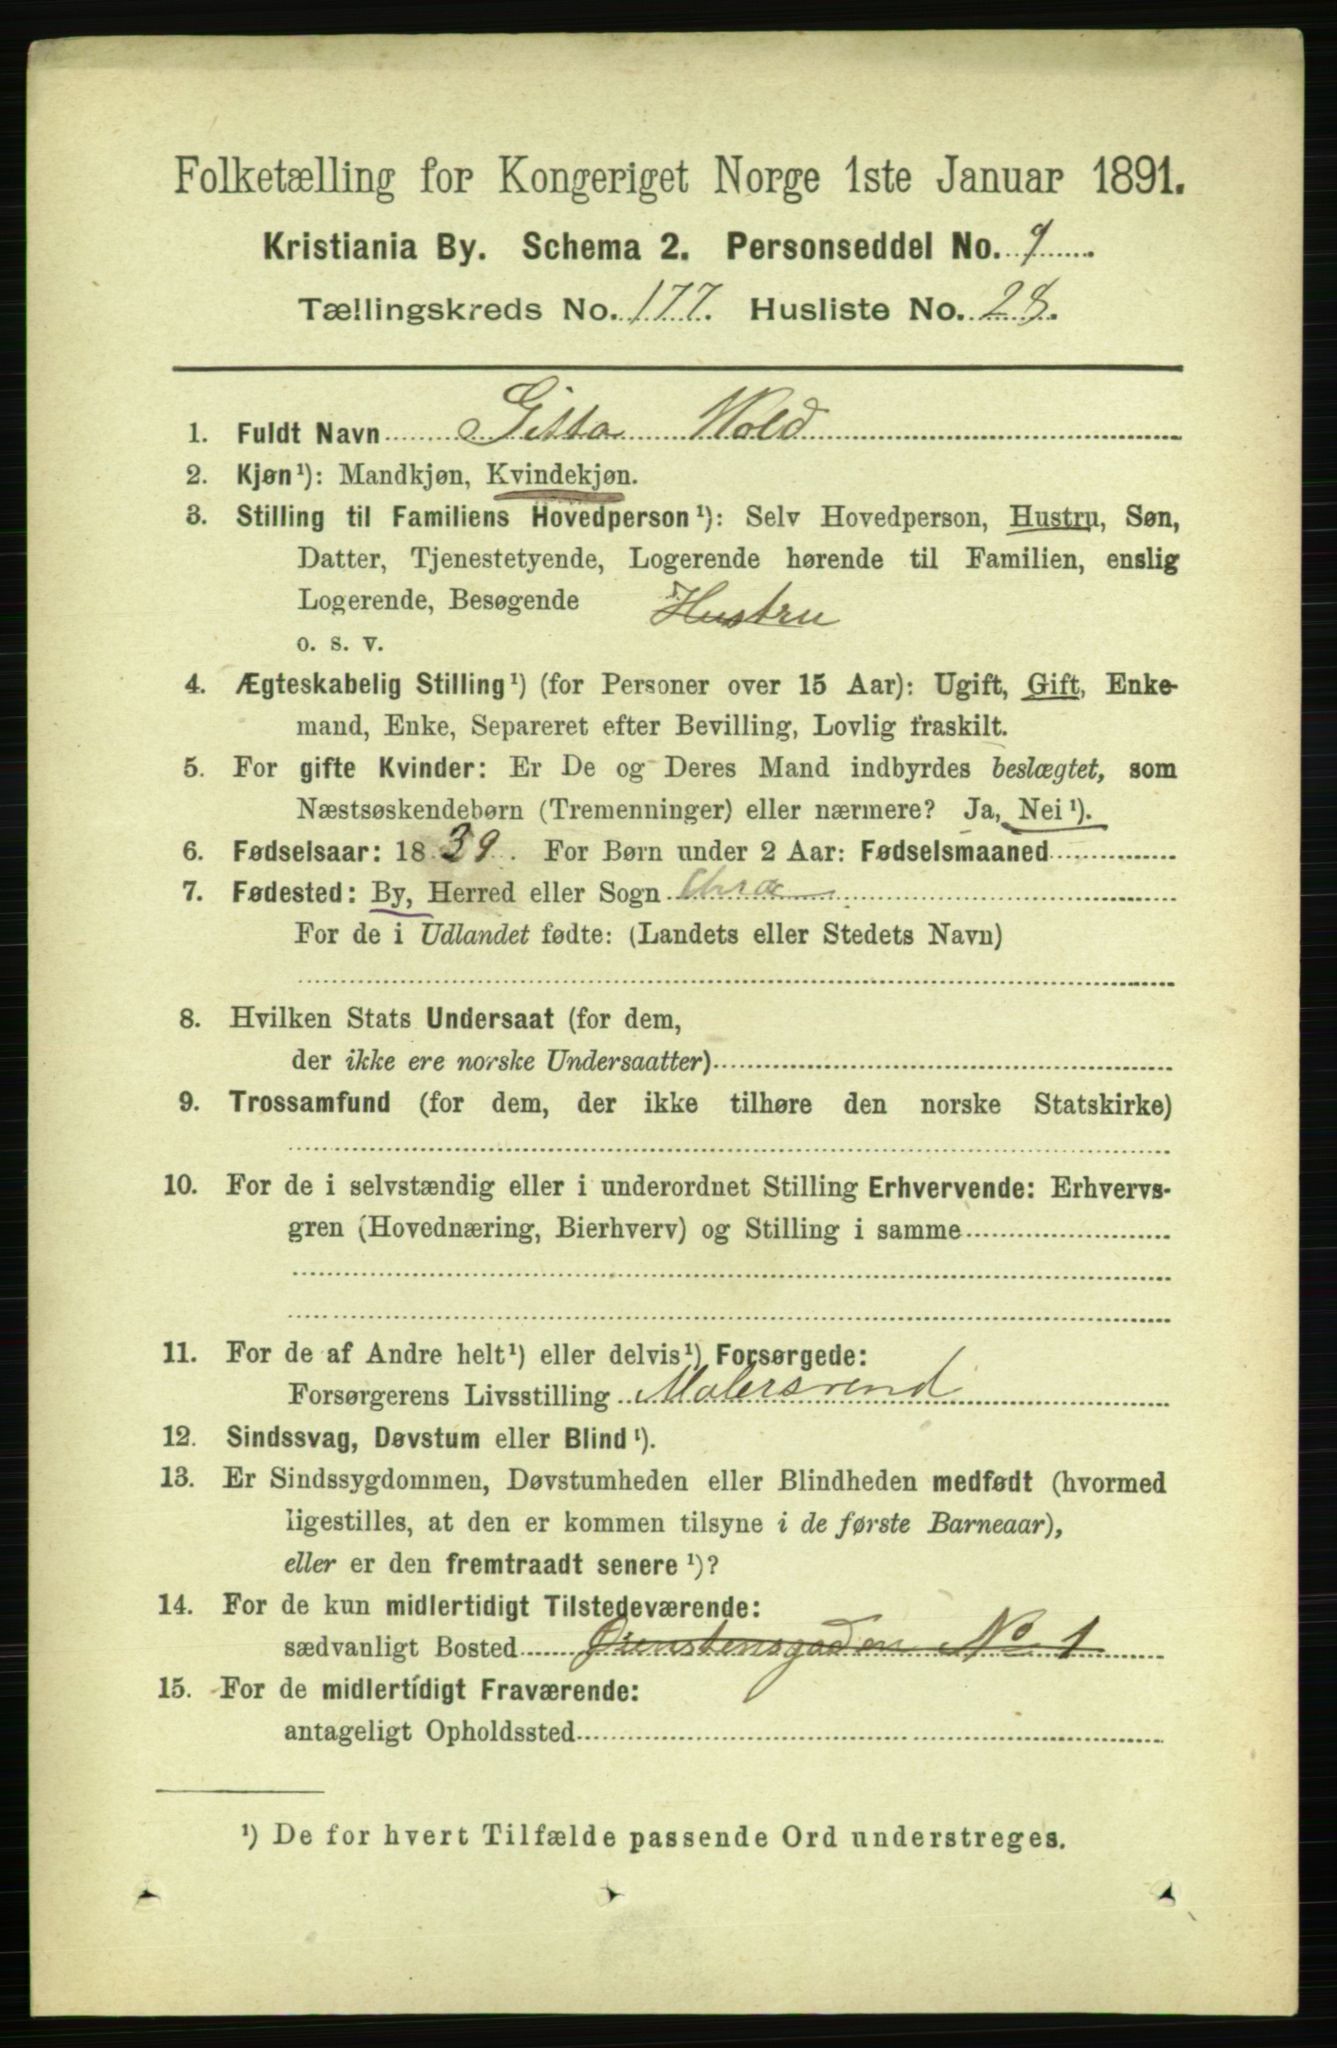 Folketælling for Kongeriget Norge 1ste Januar 1891.
Kristiania By. Schema 2. Personseddel No. 9
Tællingskreds No. 177. Husliste No. 28.
1. Fuldt Navn Gitta Wold
2. Kjøn¹): Mandkjøn, Kvindekjøn.
3. Stilling til Familiens Hovedperson¹): Selv Hovedperson, Hustru, Søn,
Datter, Tjenestetyende, Logerende hørende til Familien, enslig
Logerende, Besøgende Hustru
o. s. v.
4. Ægteskabelig Stilling¹) (for Personer over 15 Aar): Ugift, Gift, Enke-
mand, Enke, Separeret efter Bevilling, Lovlig fraskilt.
5. For gifte Kvinder: Er De og Deres Mand indbyrdes beslægtet, som
Næstsøskendebørn (Tremenninger) eller nærmere? Ja, Nei¹).
6. Fødselsaar: 1839. For Børn under 2 Aar: Fødselsmaaned
7. Fødested: By, Herred eller Sogn Chra
For de i Udlandet fødte: (Landets eller Stedets Navn)
8. Hvilken Stats Undersaat (for dem,
der ikke ere norske Undersaatter)
9. Trossamfund (for dem, der ikke tilhøre den norske Statskirke)
10. For de i selvstændig eller i underordnet Stilling Erhvervende: Erhvervs-
gren (Hovednæring, Bierhverv) og Stilling i samme
11. For de af Andre helt¹) eller delvis¹) Forsørgede:
Forsørgerens Livsstilling Malersvend
12. Sindssvag, Døvstum eller Blind¹).
13. Er Sindssygdommen, Døvstumheden eller Blindheden medfødt (hvormed
ligestilles, at den er kommen tilsyne i de første Barneaar),
eller er den fremtraadt senere¹)?
14. For de kun midlertidigt Tilstedeværende:
sædvanligt Bosted No 1
15. For de midlertidigt Fraværende:
antageligt Opholdssted
¹) De for hvert Tilfælde passende Ord understreges.